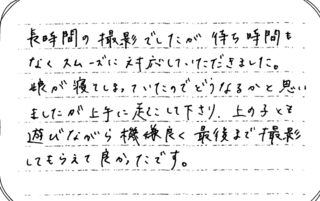 長時間の撮影でしたが待ち時間も
なくスムーズに対応していただきました。
娘が寝てしまっていたのでどうなるかと思い
ましたが上手に起こして下さり、上の子とも
遊びながら機嫌良く最後まで撮影
してもらえて良かったです。